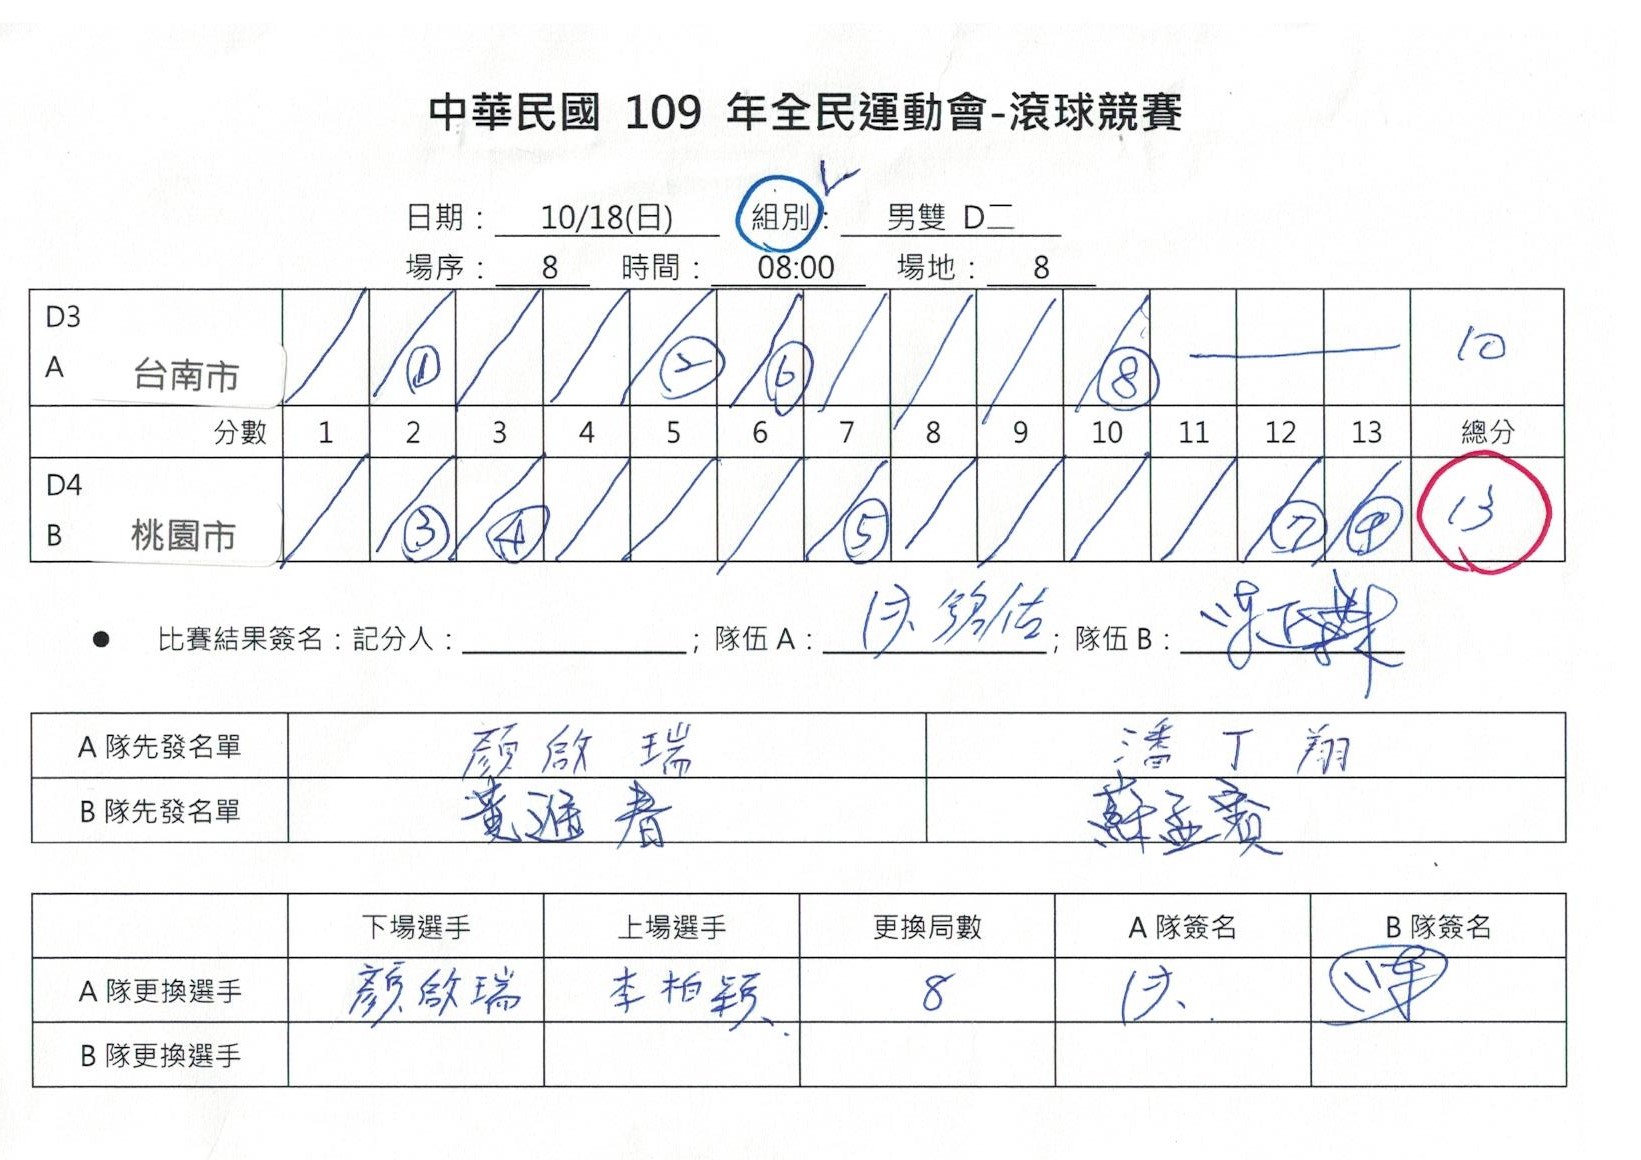 中華民國 109 年全民運動會-滾球競賽
日期： 10/18(日) 組別： 男雙 D二
場序： 8 時間： 08:00 場地： 8
D3
A 台南市 ① ② ⑥ ⑧ 10
分數 1 2 3 4 5 6 7 8 9 10 11 12 13 總分
D4
B 桃園市 ③ ④ ⑤ ⑦ ⑨ 13
● 比賽結果簽名：記分人： ；隊伍 A： ；隊伍 B：
A 隊先發名單 顏啟瑞 潘丁翔
B 隊先發名單 黃進春 蘇孟賓
下場選手 上場選手 更換局數 A 隊簽名 B 隊簽名
A 隊更換選手 顏啟瑞 李柏穎 8
B 隊更換選手